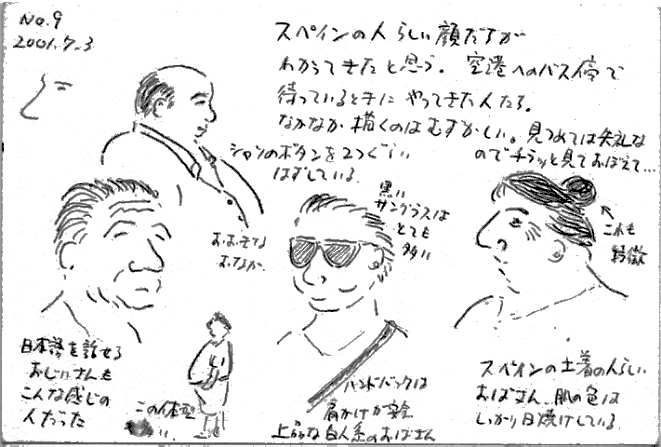 No.9
2001.7.3
スペインの人らしい顔だちが
わかってきたと思う。空港へのバス停で
待っているときに やってきた人たち。
なかなか描くのはむずかしい。見つめては失礼な
のでチラッと見ておぼえて…
シャツのボタンを2つぐらい
はずしている
おおきな
おなか
黒い
サングラスは
とても
多い
これも
特徴
日本語を話せる
おじいさんも
こんな感じの
人だった
この体型
ハンドバックは
肩かけが安全
上品な白人系のおばさん
スペインの土着の人らしい
おばさん 肌の色は
しっかり日焼けしている